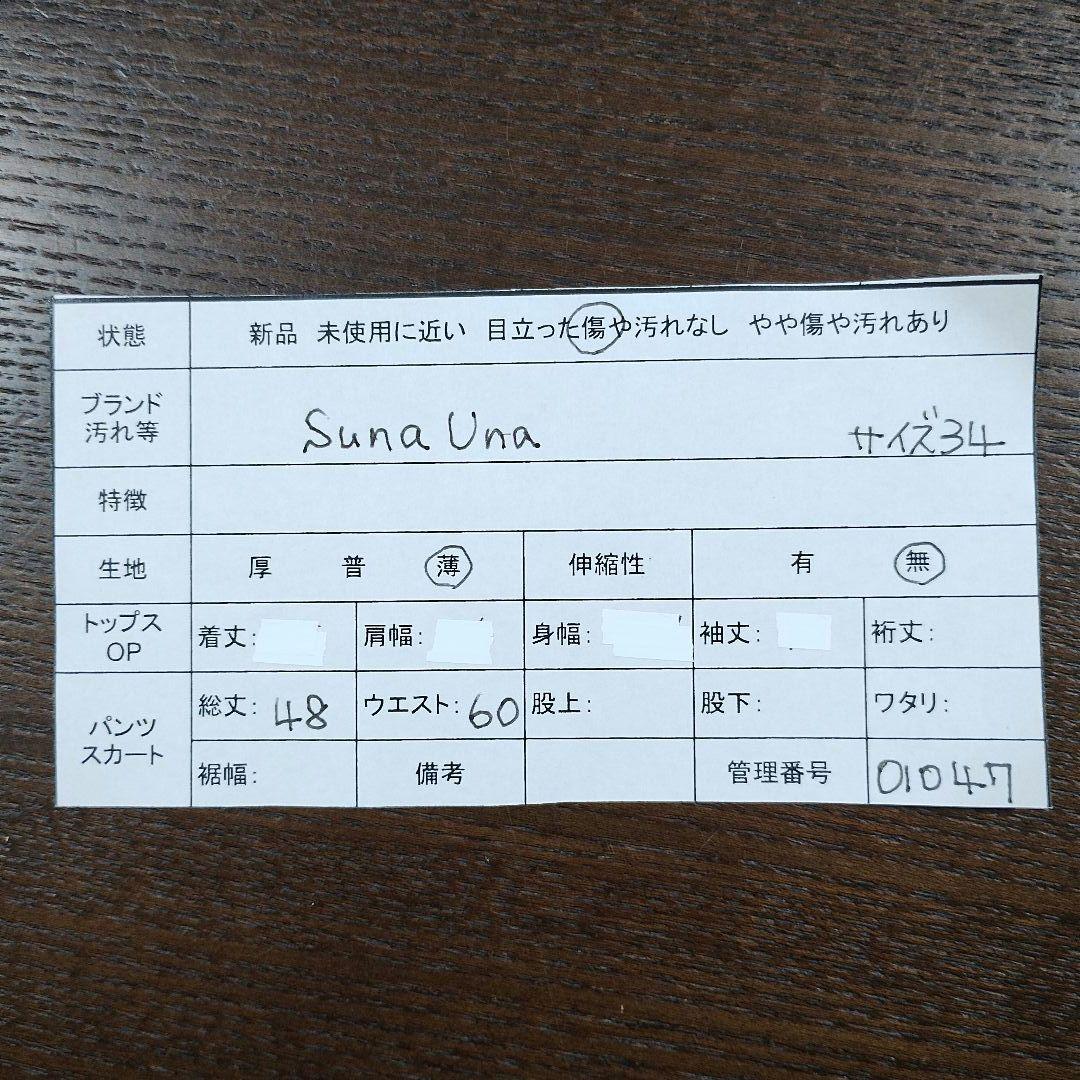 状態 新品 未使用に近い 目立った傷や汚れなし やや傷や汚れあり
ブランド
汚れ等 Suna Una サイズ34
特徴
生地 厚 普 薄 伸縮性 有 無
トップス
OP 着丈: 肩幅: 身幅: 袖丈: 裄丈:
パンツ
スカート 総丈: 48 ウエスト: 60 股上: 股下: ワタリ:
裾幅: 備考 管理番号 01047